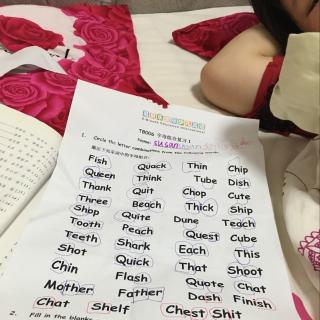 TB006 字母组合复习 1
Name: susan
1. Circle the letter combinations from the following words.
Fish Quack Thin Chip
Queen Think Tube Dish
Thank Quit Chop Cute
Three Beach Thick Ship
Shop Quite Dune Teach
Tooth Peach Quest Cube
Teeth Shark Each This
Shot Quick That Shoot
Chin Flash Quote Chat
Mother Father Dash Finish
Chat Shelf Chest Shit
2. Fill in the blanks